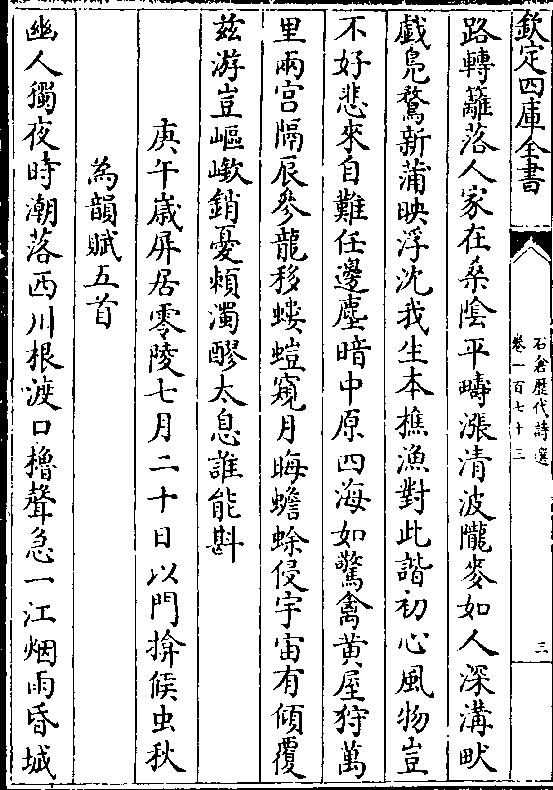 欽定四庫全書
石倉歷代詩選
卷一百七十三
三
路轉籬落人家在桑陰平疇漲清波隴麥如人深溝畎
戯鳬鶩新蒲映浮沈我生本樵漁對此諧初心風物豈
不好悲來自難任邊塵暗中原四海如驚禽黄屋狩萬
里兩宫隔辰參龍移螻螘窺月晦蟾蜍侵宇宙有傾覆
兹游豈嶇嶔銷憂頼濁醪太息誰能斟
庚午歳屏居零陵七月二十日以門揜候虫秋
為韻賦五首
幽人獨夜時潮落西川根渡口櫓聲急一江烟雨昏城